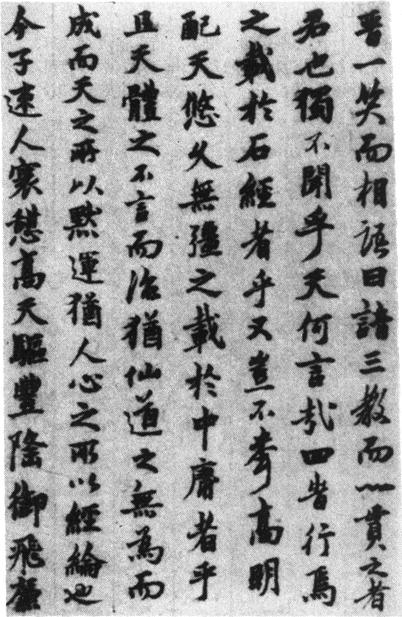 晉一笑而相語曰諳三教而一貫之者
君也獨不聞乎天何言哉四旹行焉
之載於石經者乎又豈不考高明
配天悠久無彊之載於中庸者乎
且天體之不言而治猶仙道之無為而
成而天之所以默運猶人心之所以經綸也
今子速人寰憇高天驅豐隆御飛廉